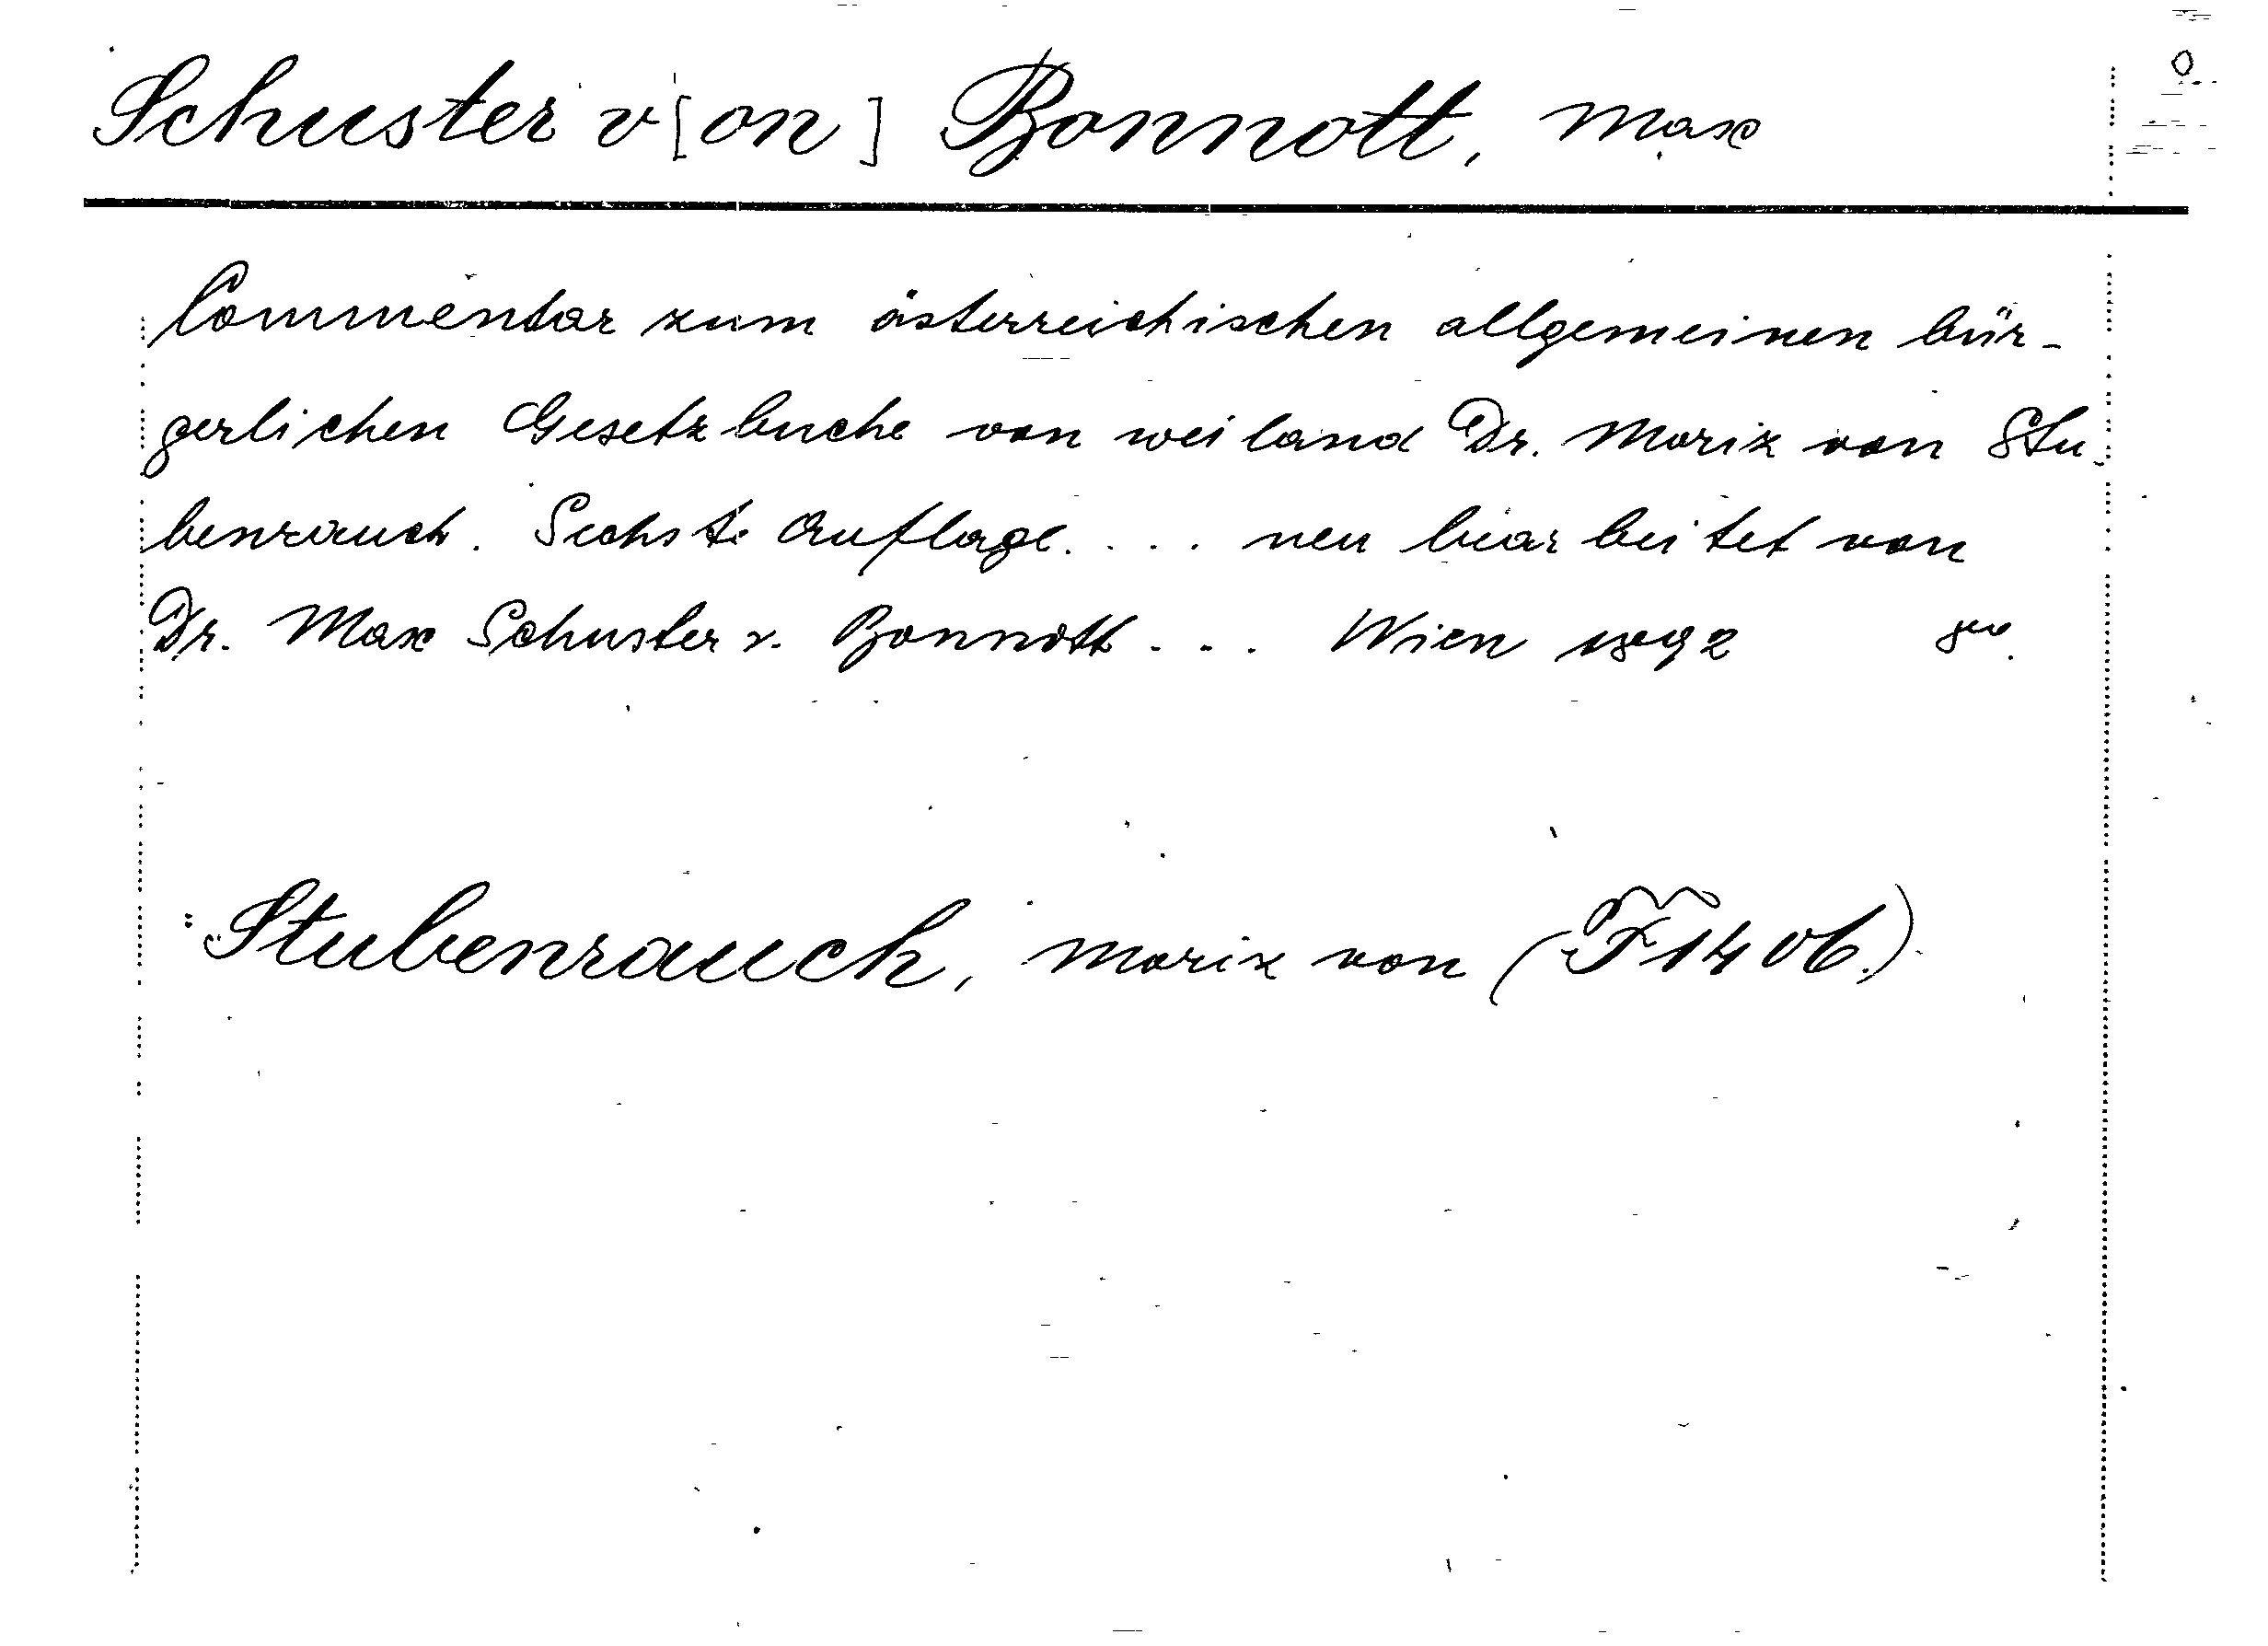 Schuster v[on] Bonnott, Max
Commentar zum österreichischen allgemeinen bür-
gerlichen Gesetzbuche von weiland Dr. Moriz von Stu-
benrauch. Sechste Auflage.... neu bearbeitet von
Dr. Max Schuster v. Bonnott... Wien 1892 8vo.
Stubenrauch, Moriz von (F 1406.)